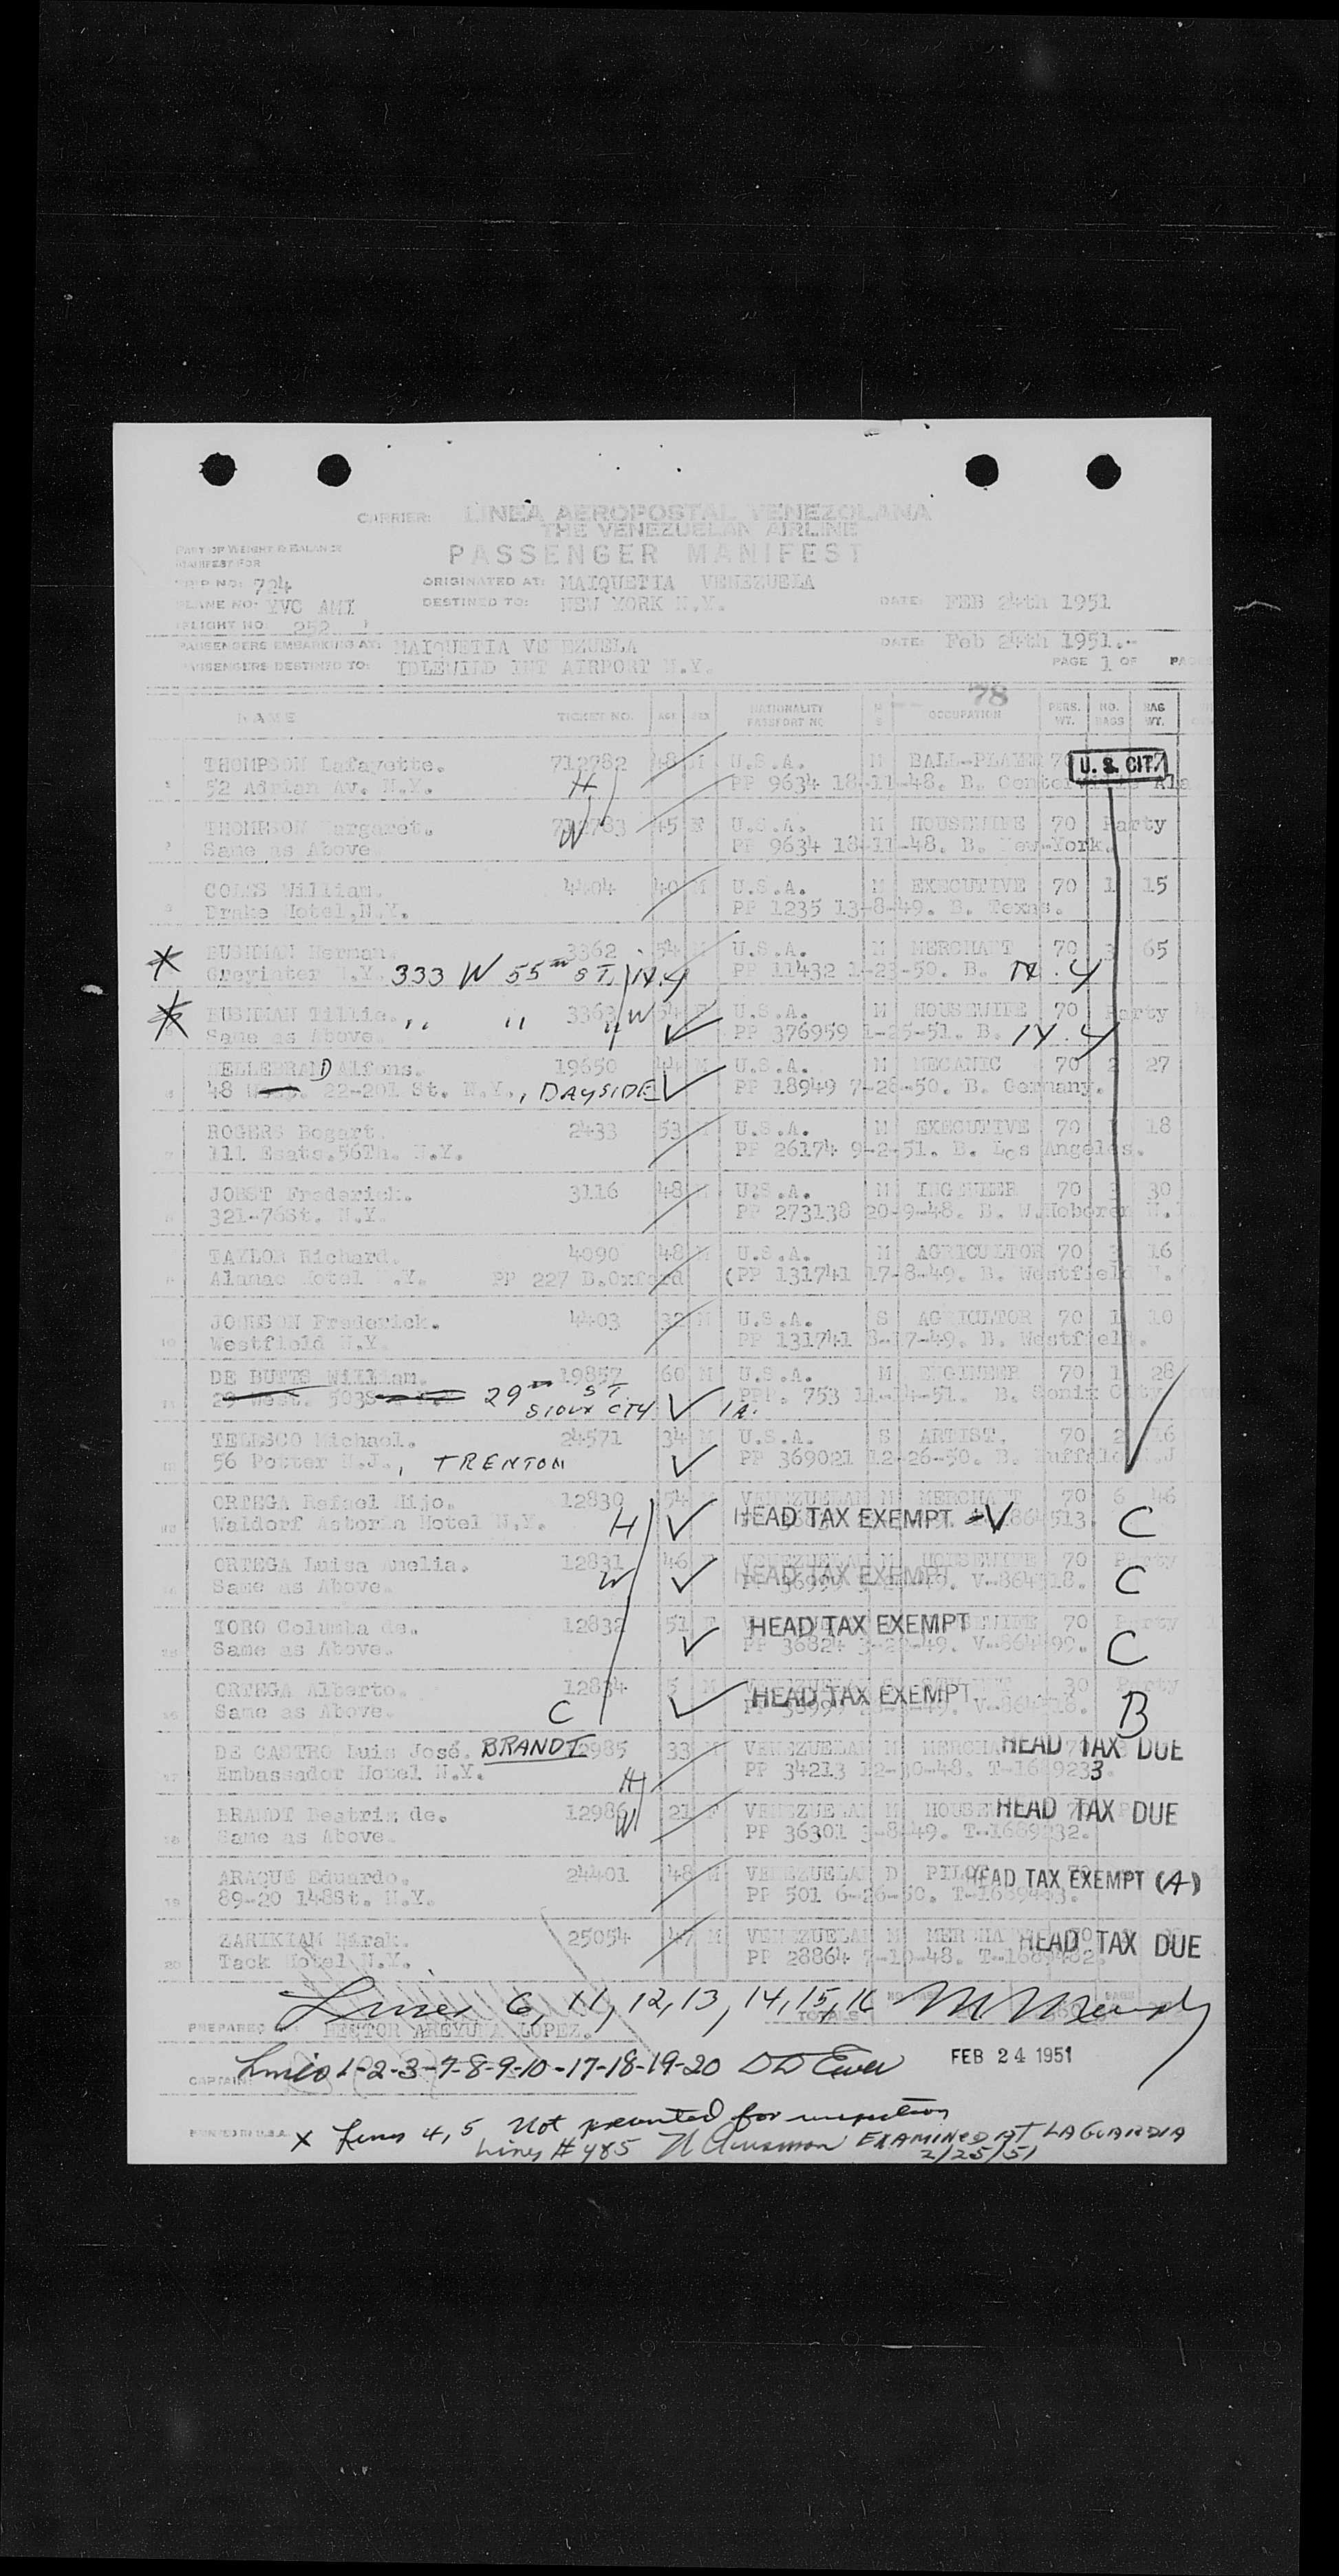 CARRIER: LINEA AEROPOSTAL VENEZOLANA
THE VENEZUELAN AIRLINE
PART OF WEIGHT & BALANCE
MANIFEST FOR
PASSENGER MANIFEST
TRIP NO: 724 ORIGINATED AT: MAIQUETIA VENEZUELA
PLANE NO: YVC AMI DESTINED TO: NEW YORK N.Y. DATE: FEB 24th 1951
FLIGHT NO 252
PASSENGERS EMBARKING AT: MAIQUETIA VE EZUELA DATE: Feb 24th 1951.-
PASSENGERS DESTINED TO: IDLEWILD INT AIRPORT N.Y. PAGE 1 OF
78
NAME TICKET NO. AGE SEX NATIONALITY PASSPORT NO M S OCCUPATION PERS. WT. NO. BAGS BAG WT.
THOMPSON Lafayette. 712782 48 M U.S.A. M BALL-PLAYER 70 U.S. CIT.
52 Adrian Av. N.Y. H PP 9634 18-11-48. B. Ala
THOMPSON Margaret. 712783 45 F U.S.A. M HOUSEWIFE 70 Party
2 Same as Above W PP 9634 18-11-48. B. New-York.
COLES William. 4404 40 M U.S.A. M EXECUTIVE 70 1 15
Drake Hotel, N.Y. PP 1235 13-8-49. B. Texas.
* BUSHMAN Herman 3362 54 U.S.A. M MERCHANT 70 3 65
N.Y. 333 W 55th ST. N.Y PP 11432 1-23-50. B. N.Y
* BUSHMAN Tillie. " " " 3363 W 54 U.S.A. M HOUSEWIFE 70 Party
Same as Above PP 376959 1-25-51. B. N.Y
HELLEBRAND Alfons. 19650 44 M U.S.A. M MECANIC 70 2 27
48 22-201 St. N.Y., BAYSIDE PP 18949 7-28-50. B. Germany.
ROGERS Bogart. 2433 53 U.S.A. M EXECUTIVE 70 18
7 111 Esats.56Th. N.Y. PP 26174 9-2-51. B. Los Angeles.
JOBST Frederick. 3116 48 U.S.A. M INGENIER 70 3 30
321-76St. N.Y. PP 273138 20-9-48. B. W.Hoboren N.
TAYLOR Richard. 4090 48 M U.S.A. M AGRICULTOR 70 3 16
Alamac Hotel N.Y. PP 227 B.Oxford (PP 131741 17-8-49. B. Westfiel
JOHNSON Frederick. 4403 32 M U.S.A. S AGRICULTOR 70 1 10
10 Westfield N.Y. PP 131741 8-17-49. B. Westfiel.
DE BUTTS William. 19857 60 M U.S.A. M INGINEER 70 1 28
11 29 West. 5038 29th ST. SIOUX CTY IA. 753 -51. B.
TELESCO Michael. 24571 34 M U.S.A. S ARTIST. 70 2 16
56 Potter N.J., TRENTON PP 369021 12-26-50. B. Buffalo
ORTEGA Rafael Hijo. 12830 54 VENEZUELAN M MERCHANT 70 6 46
Waldorf Astoria Hotel N.Y. H HEAD TAX EXEMPT V-864513. C
ORTEGA Luisa Amelia. 12831 46 VENEZUELAN M HOUSEWIFE 70 Party
Same as Above. W HEAD TAX EXEMPT V-864518. C
TORO Columba de. 12832 51 F HEAD TAX EXEMPT 70 Party
Same as Above. PP 36824 3-2 -49. V-864499. C
ORTEGA Alberto. 12834 5 M HEAD TAX EXEMPT 30 Party
16 Same as Above. C B
DE CASTRO Luis José. BRANDT 12985 33 M VENEZUELAN M MERCHA HEAD TAX DUE
17 Embassador Hotel N.Y. H PP 34213 12-30-48. T-1689233.
BRANDT Beatriz de. 12986 21 F VENEZUELAN M HOUSE HEAD TAX DUE
18 Same as Above. W PP 36301 3-8-49. T-1689232.
ARAQUE Eduardo. 24401 48 M VENEZUELAN D PILOT HEAD TAX EXEMPT (A)
19 89-20 148St. N.Y. PP 501 6-26-50. T-1689443.
ZARIKIAN Tirak. 25054 47 M VENEZUELAN M MERCHA HEAD TAX DUE
20 Tack Hotel N.Y. PP 28864 7-10-48. T-1689482.
Lines 6, 11, 12, 13, 14, 15, 16
TOTALS
PREPARED BY: HECTOR AREYUNA LOPEZ.
CAPTAIN Lines 1-2-3-7-8-9-10-17-18-19-20 FEB 24 1951
PRINTED IN U.S.A. X Lines 4, 5 Not presented for inspection
Lines #4&5 EXAMINED AT LAGUARDIA
2/25/51